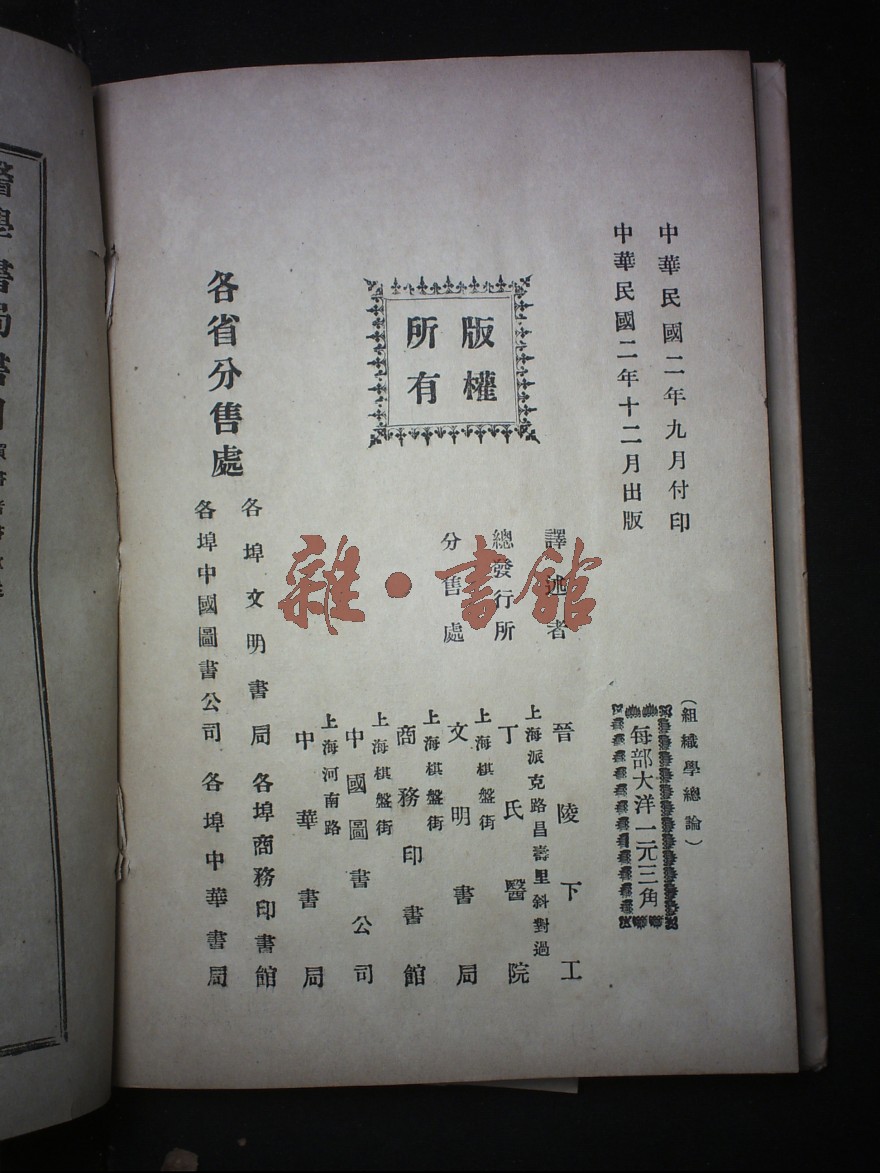 中華民國二年九月付印
中華民國二年十二月出版
(組織學總論)
每部大洋一元三角
版權
所有
譯述者
晉陵下工
總發行所
上海派克路昌壽里斜對過
丁氏醫院
分售處
上海棋盤街
文明書局
上海棋盤街
商務印書館
上海棋盤街
中國圖書公司
上海河南路
中華書局
各省分售處
各埠文明書局 各埠商務印書館
各埠中國圖書公司 各埠中華書局
雜·書館
醫學書局書目